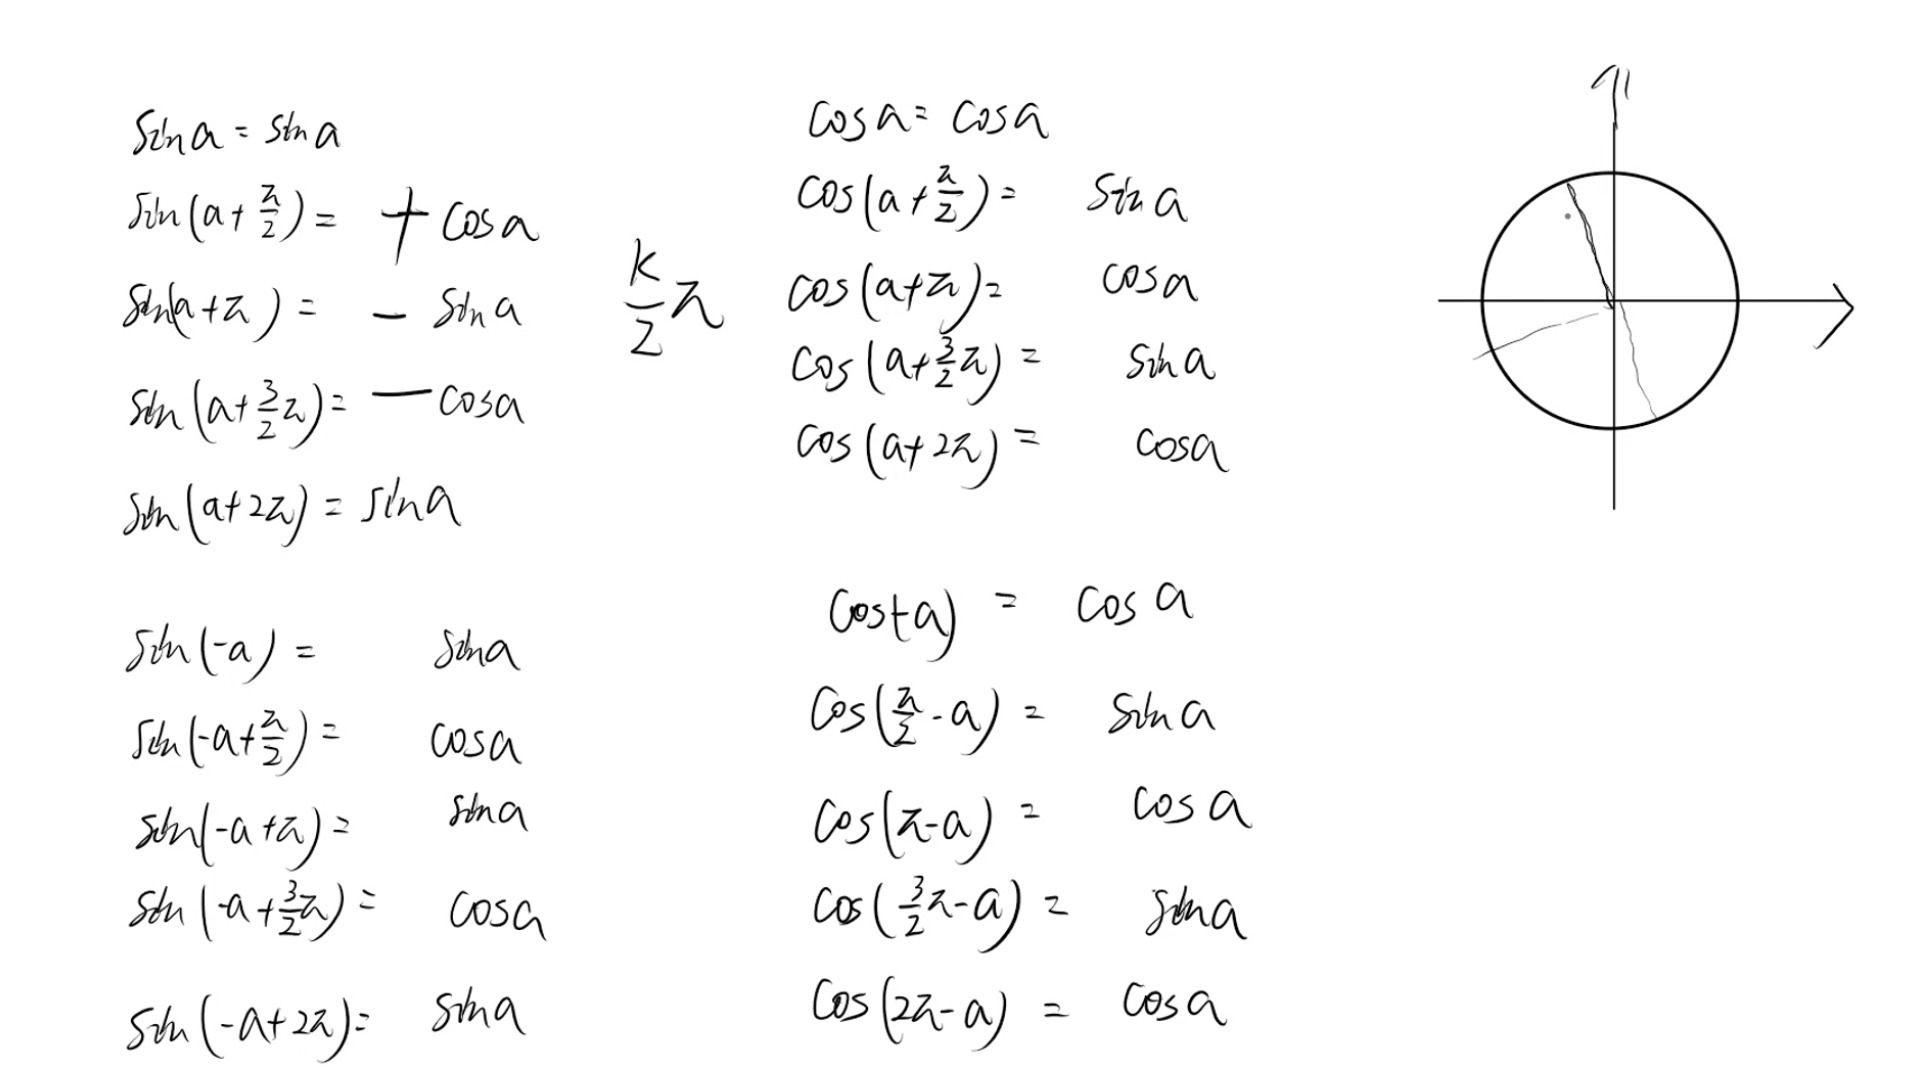 sin a = sin a
sin(a + π/2) = + cos a
sin(a + π) = - sin a
sin(a + 3/2 π) = - cos a
sin(a + 2π) = sin a
sin(-a) = sin a
sin(-a + π/2) = cos a
sin(-a + π) = sin a
sin(-a + 3/2 π) = cos a
sin(-a + 2π) = sin a
k/2 π
cos a = cos a
cos(a + π/2) = sin a
cos(a + π) = cos a
cos(a + 3/2 π) = sin a
cos(a + 2π) = cos a
cos(-a) = cos a
cos(π/2 - a) = sin a
cos(π - a) = cos a
cos(3/2 π - a) = sin a
cos(2π - a) = cos a